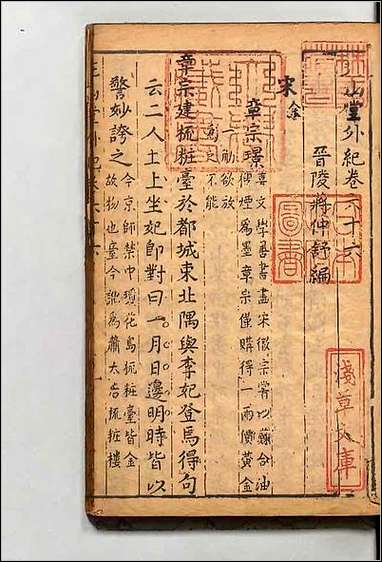 堯山堂外紀卷六十六
晉陵蔣仲舒編
宋金
章宗璟
喜文學善書畫宋徽宗嘗以蘇合油
煙為墨章宗僅購得一兩價黃金
一觔欲放
為之不能
章宗建梳粧臺於都城東北隅與李妃登焉得句
云二人土上坐妃卽對曰一月日邊明時皆以
警妙誇之
今京師禁中瓊花島梳粧臺皆金
故物也臺今訛為蕭太后梳粧樓
淺草文庫
圖書